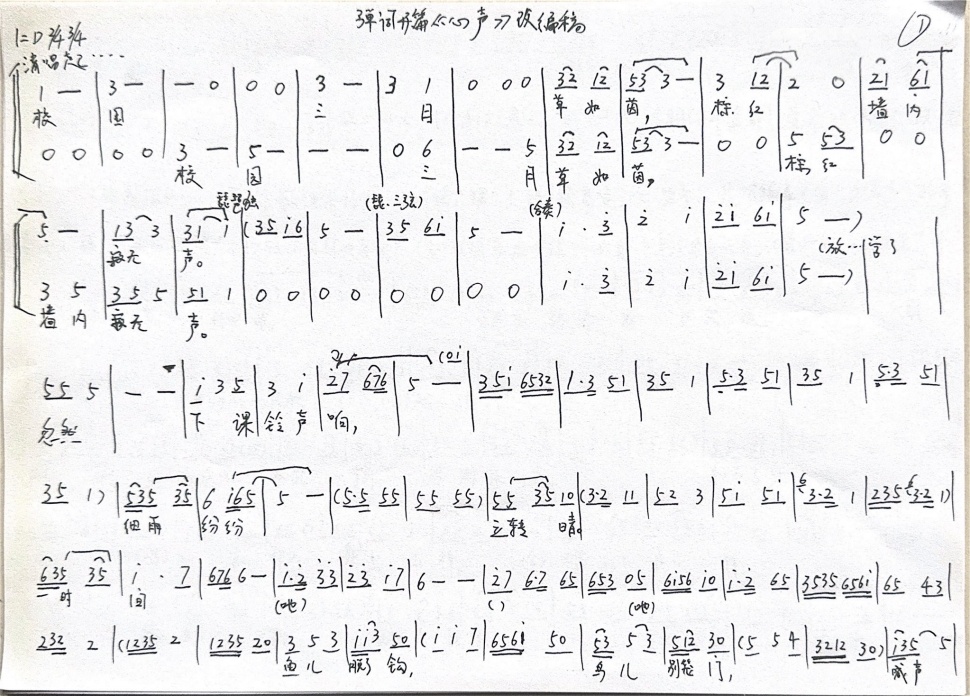 弹词开篇《心声》改编稿 ①
1=D 2/4 3/4
清唱
1 — | 3 — | — 0 | 0 0 | 3 — | 3 1 | 0 0 0 | 32 12 | 53 3 — | 3 12 | 2 0 | 21 61 |
校 园 三 月 草 如 茵, 桩 红 墙 内
0 0 | 0 0 | 3 — | 5 — | — — | 0 6 | — — 5 | 32 12 | 53 3 — | 0 0 | 5 53 | 0 0
校 园 三 月 草 如 茵, 桩 红
琵琶弦 (琵.三弦) (合奏)
5 — | 13 3 | 31 1 | (35 i6 | 5 — | 35 6i | 5 — | i · 3 | 2 i | 2i 6i | 5 —) | |
寂无 声。 (放…学了
3 5 | 35 5 | 51 1 | 0 0 | 0 0 | 0 0 | 0 0 | i · 3 | 2 i | 2i 6i | 5 —)
墙 内 寂无 声。
55 5 | — — | i 35 | 3 i | 27 676 | 5 — (0i | 35i 6532 | 1·3 51 | 35 1 | 5·3 51 | 35 1 | 5·3 51
忽然 下 课 铃 声 响,
35 1) | 535 35 | 6 i65 | 5 — | (5·5 55 | 55 55) | 55 35 10 | (3·2 11 | 52 3 | 5i 5i | 3·2 1 | 235 3·2 1)
细雨 纷纷 立转 晴。
635 35 | i · 7 | 676 6 — | i·2 33 | 23 i7 | 6 — — | 27 6·7 65 | 653 05 | 6156 10 | i·2 65 | 3535 656i | 65 43
时 间 (吔) ( ) (吔)
232 2 | (1235 2 | 1235 20 | 3 5 3 | ii3 50 | (i i 7 | 656i 50 | 53 5 3 | 512 30 | (5 5 4 | 3212 30) | i35 5
鱼 儿 脱了 钩, 鸟 儿 别笼 门, 咸声